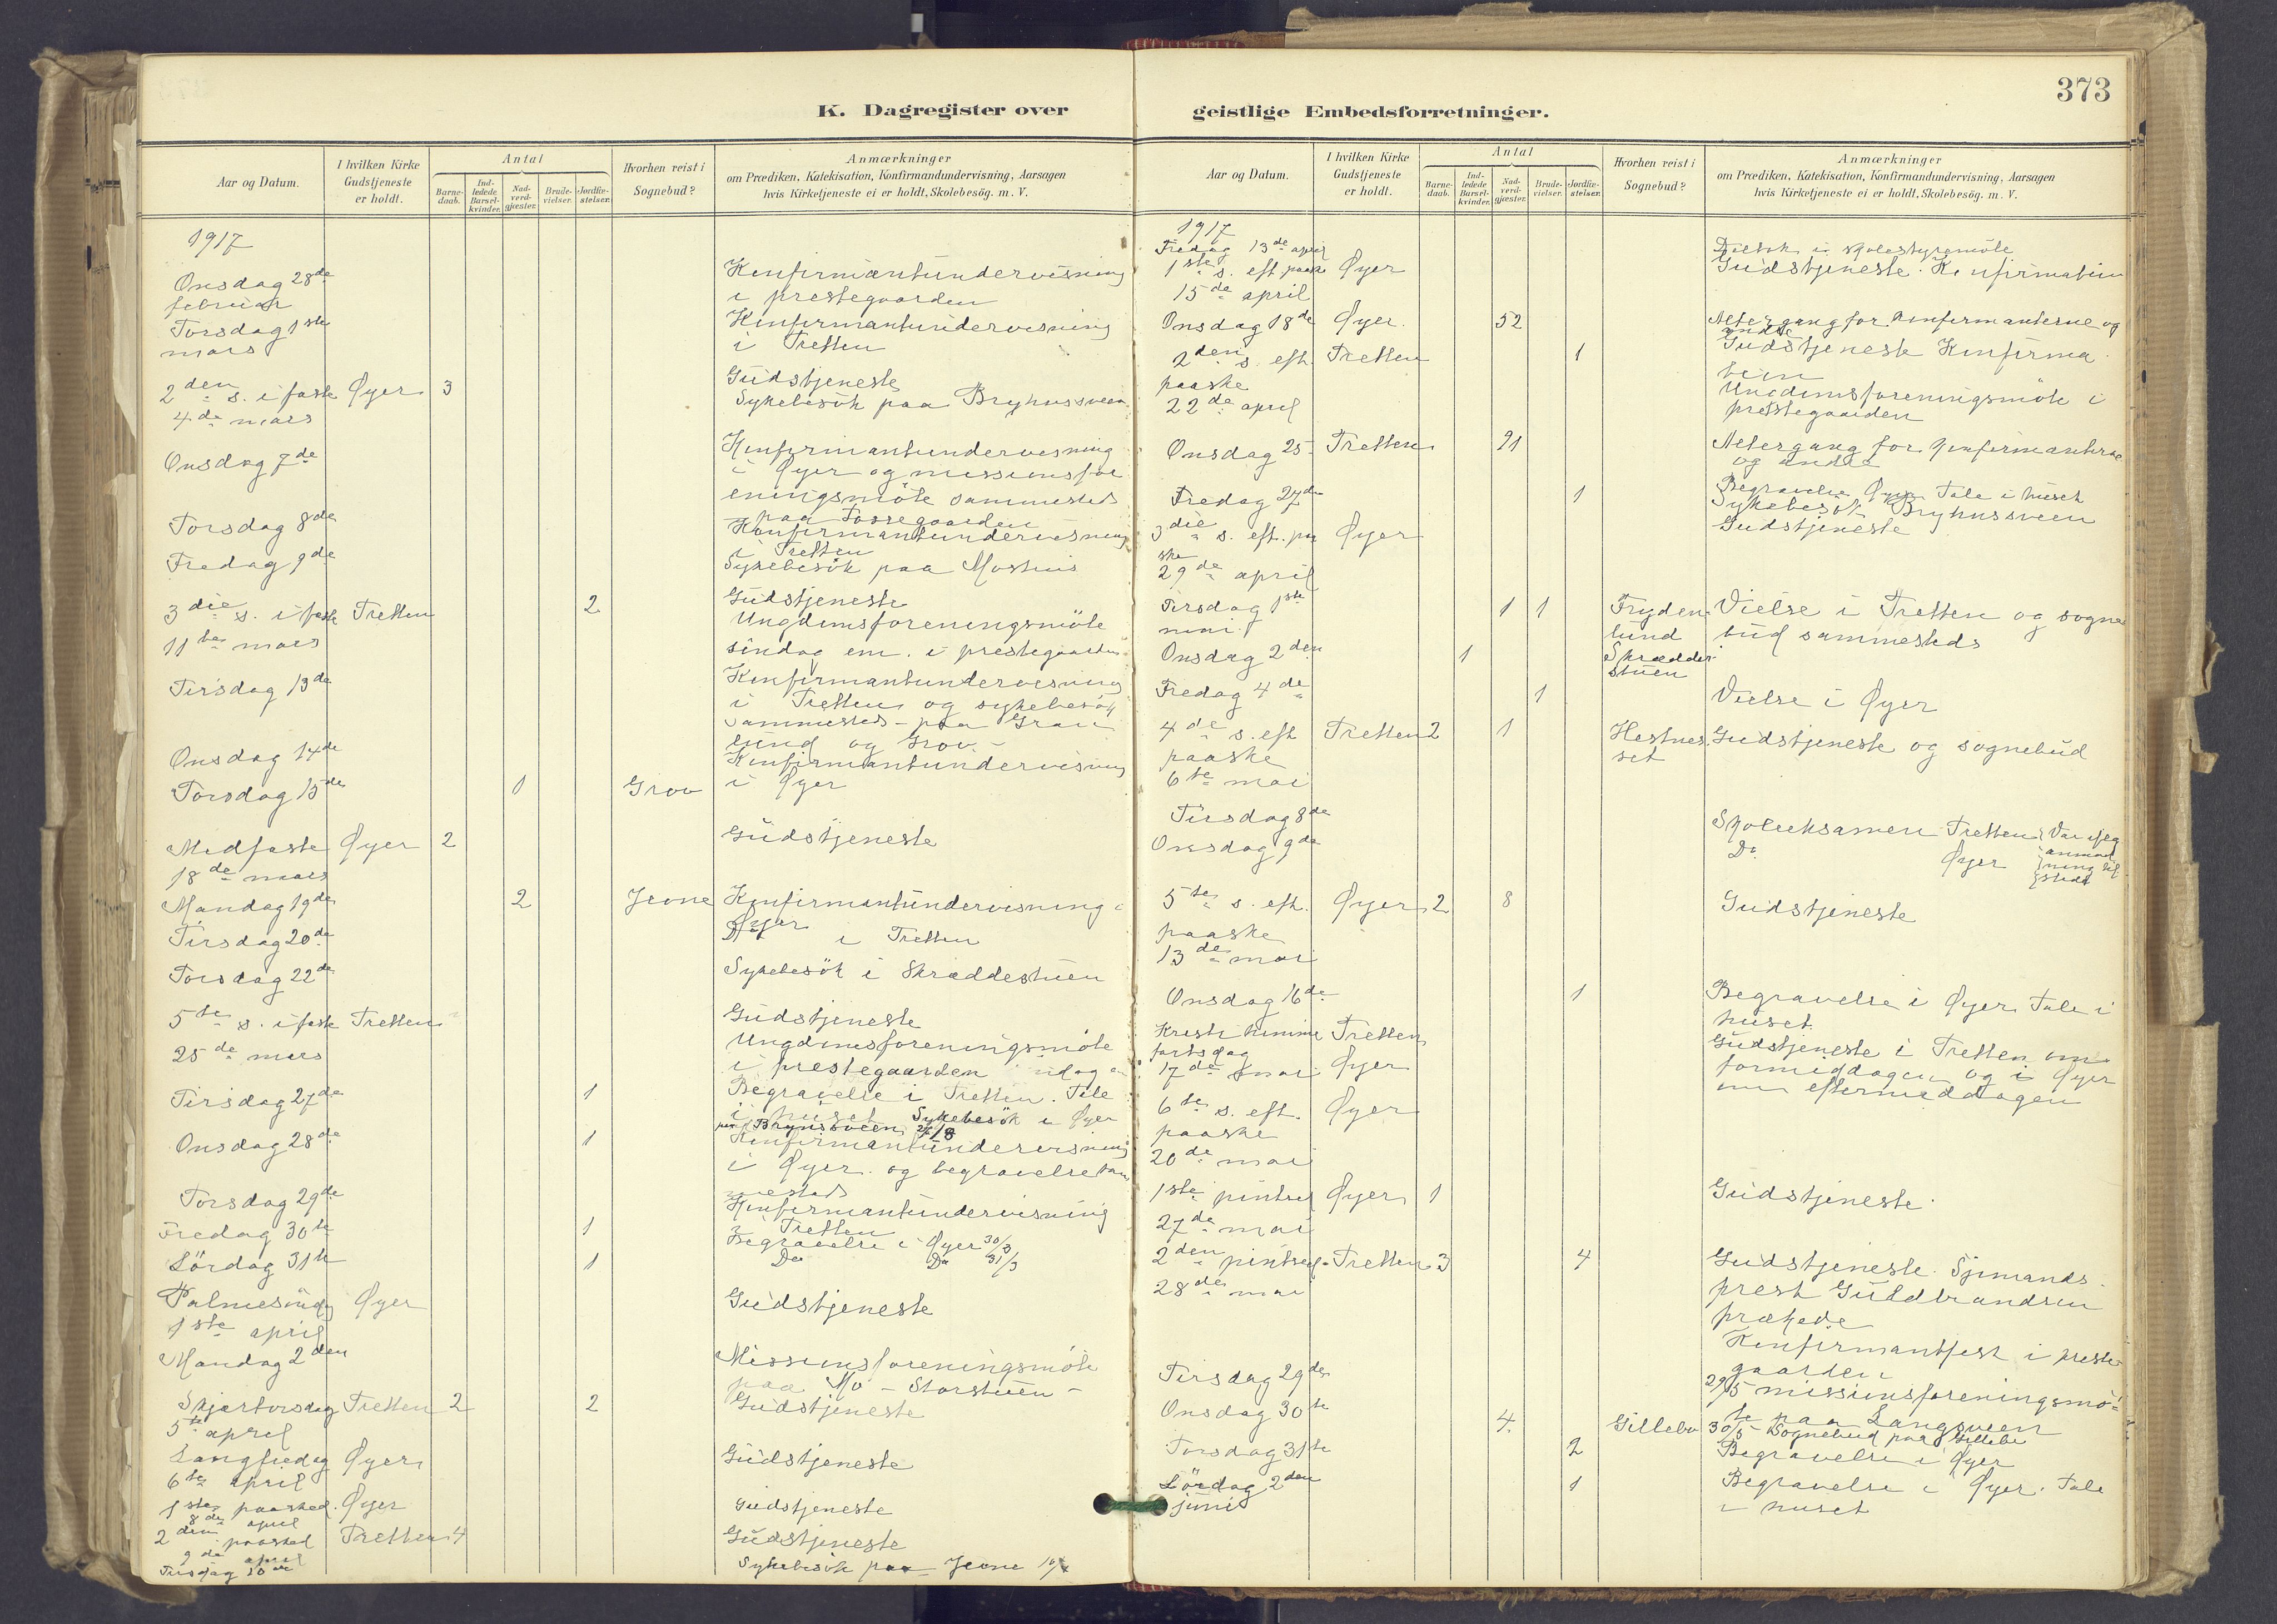 373
K. Dagregister over geistlige Embedsforretninger.
Aar og Datum. I hvilken Kirke Gudstjeneste er holdt. Antal Barnedaab. Indledede Barselkvinder. Nadverdgjæster. Brudevielser. Jordfæstelser. Hvorhen reist i Sognebud? Anmærkninger
om Prædiken, Katekisation, Konfirmandundervisning, Aarsagen
hvis Kirketjeneste ei er holdt, Skolebesøg. m. V.
1917
Onsdag 28de Konfirmantundervisning
februar i prestegaarden
Torsdag 1ste Konfirmantundervisning
mars i Tretten
2den s. i faste Øyer 3 Gudstjeneste
4de mars Sykebesök paa Bryhussveen
Onsdag 7de Konfirmantundervisning
i Øyer og missionsfor
eningsmöte sammesteds
paa Fossegaarden
Torsdag 8de Konfirmantundervisning
i Tretten
Fredag 9de Sykebesök paa Moshus
3die s. i faste Tretten 2 Gudstjeneste
11te mars Ungdomsforeningsmöte
söndag em. i prestegaarden
Tirsdag 13de Konfirmantundervisning
i Tretten og sykebesök
sammesteds - paa Gran
lund og Grov.
Onsdag 14de Konfirmantundervisning
i Øyer
Torsdag 15de 1 Grov
Midfaste Øyer 2 Gudstjeneste
18de mars
Mandag 19de 2 Jevne Konfirmantundervisning i
Øyer
Tirsdag 20de Do i Tretten
Torsdag 22de Sykebesök i Skræddestuen
5te s. i faste Tretten Gudstjeneste
25de mars Ungdomsforeningsmöte
i prestegaarden
Tirsdag 27de 1 Begravelse i Tretten. Tale
i huset Sykebesök i Øyer
Onsdag 28de 1 Konfirmantundervisning
i Øyer og begravelse sam
mesteds
Torsdag 29de Konfirmantundervisning
i Tretten
Fredag 30te 1 Begravelse i Øyer 30/3
Lördag 31te 1 Do Do 31/3
Palmesöndag Øyer Gudstjeneste
1ste april
Mandag 2den Missionsforeningsmöte
paa Mo - Storstuen -
Skjærtorsdag Tretten 2 2 Gudstjeneste
5te april
Langfredag Øyer Gudstjeneste
6te april
1ste paasked. Øyer Gudstjeneste
8de april
2den paasked Tretten 4 Gudstjeneste
9de april
Tirsdag 10de Sykebesök paa Jevne
Aar og Datum. I hvilken Kirke Gudstjeneste er holdt. Antal Barnedaab. Indledede Barselkvinder. Nadverdgjæster. Brudevielser. Jordfæstelser. Hvorhen reist i Sognebud? Anmærkninger
om Prædiken, Katekisation, Konfirmandundervisning, Aarsagen
hvis Kirketjeneste ei er holdt, Skolebesøg. m. V.
1917
Fredag 13de april Deltok i skolestyremöte
1ste s. eft paaske Øyer Gudstjeneste. Konfirmation
15de april
Onsdag 18de Øyer. 52 Altergang for konfirmanterne og
andre
2den s. eft. Tretten 1 Gudstjeneste Konfirma
paaske tion
22de april Ungdomsforeningsmöte i
prestegaarden
Onsdag 25 Tretten 91 Altergang for konfirmanterne
og andre
Fredag 27de 1 Begravelse Øyer Tale i huset
Sykebesök Bryhussveen
3die s. eft. paa Øyer Gudstjeneste
ske
29de april
Tirsdag 1ste 1 1 Fryden Vielse i Tretten og sogne
mai lund bud sammesteds
Onsdag 2den 1 Skrædder
stuen
Fredag 4de 1 Vielse i Øyer
4de s. eft Tretten 2 1 Hestnes Gudstjeneste og sognebud
paaske set
6te mai
Tirsdag 8de Skoleeksamen Tretten Var efter
Onsdag 9de Do. Øyer anmod
ning til
stede
5te s. eft. Øyer 2 8 Gudstjeneste
paaske
13de mai
Onsdag 16de 1 Begravelse i Øyer Tale i
huset.
Kristi himme Tretten Gudstjeneste i Tretten om
fartsdag formiddagen og i Øyer
17de mai Øyer om eftermiddagen
6te s. eft. Øyer
paaske
20de mai
1ste pintsed Øyer 1 Gudstjeneste.
27de mai
2den pintsed. Tretten 3 4 Gudstjeneste. Sjömands
28de mai prest Guldbrandsen
prækede
Konfirmantfest i preste
gaarden
Tirsdag 29de 29/5 missionsforeningsmö
te paa Langsveen
Onsdag 30te 4. Gillebo 30/5 Sognebud paa Gillebo
Torsdag 31te 2 Begravelse i Øyer
Lördag 2den 1 Begravelse i Øyer. Tale
juni i huset